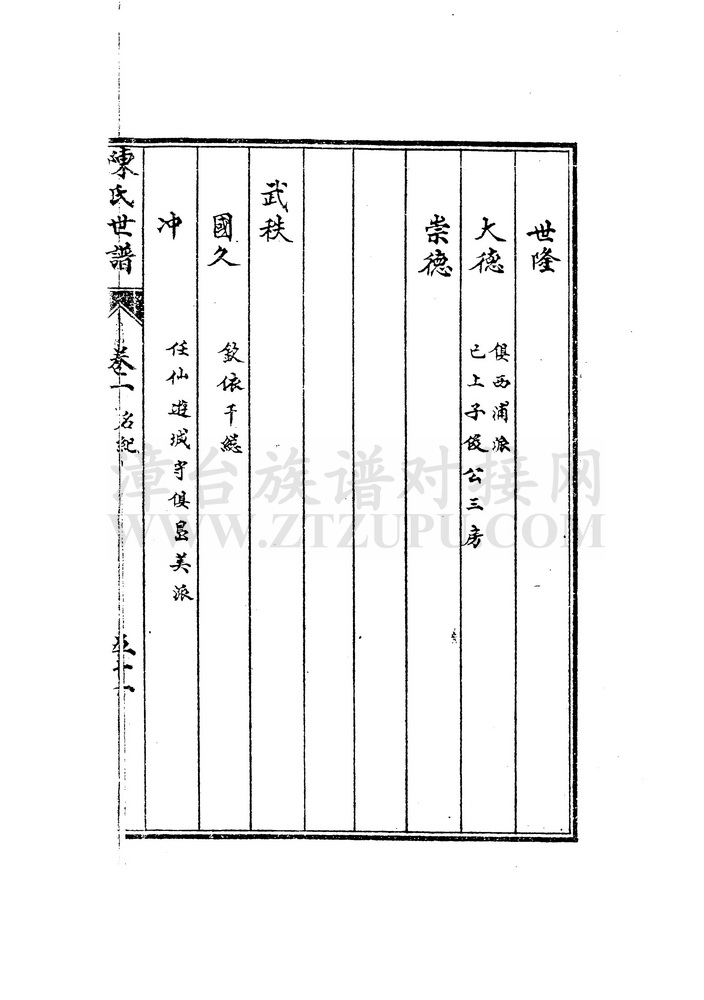 世隆
大德
俱西浦派
已上子俊公三房
崇德
武秩
國久
欽依千總
冲
任仙遊城守俱昌美派
陳氏世譜
卷一
名紀
五十一
漳台族谱对接网
WWW.ZTZUPU.COM